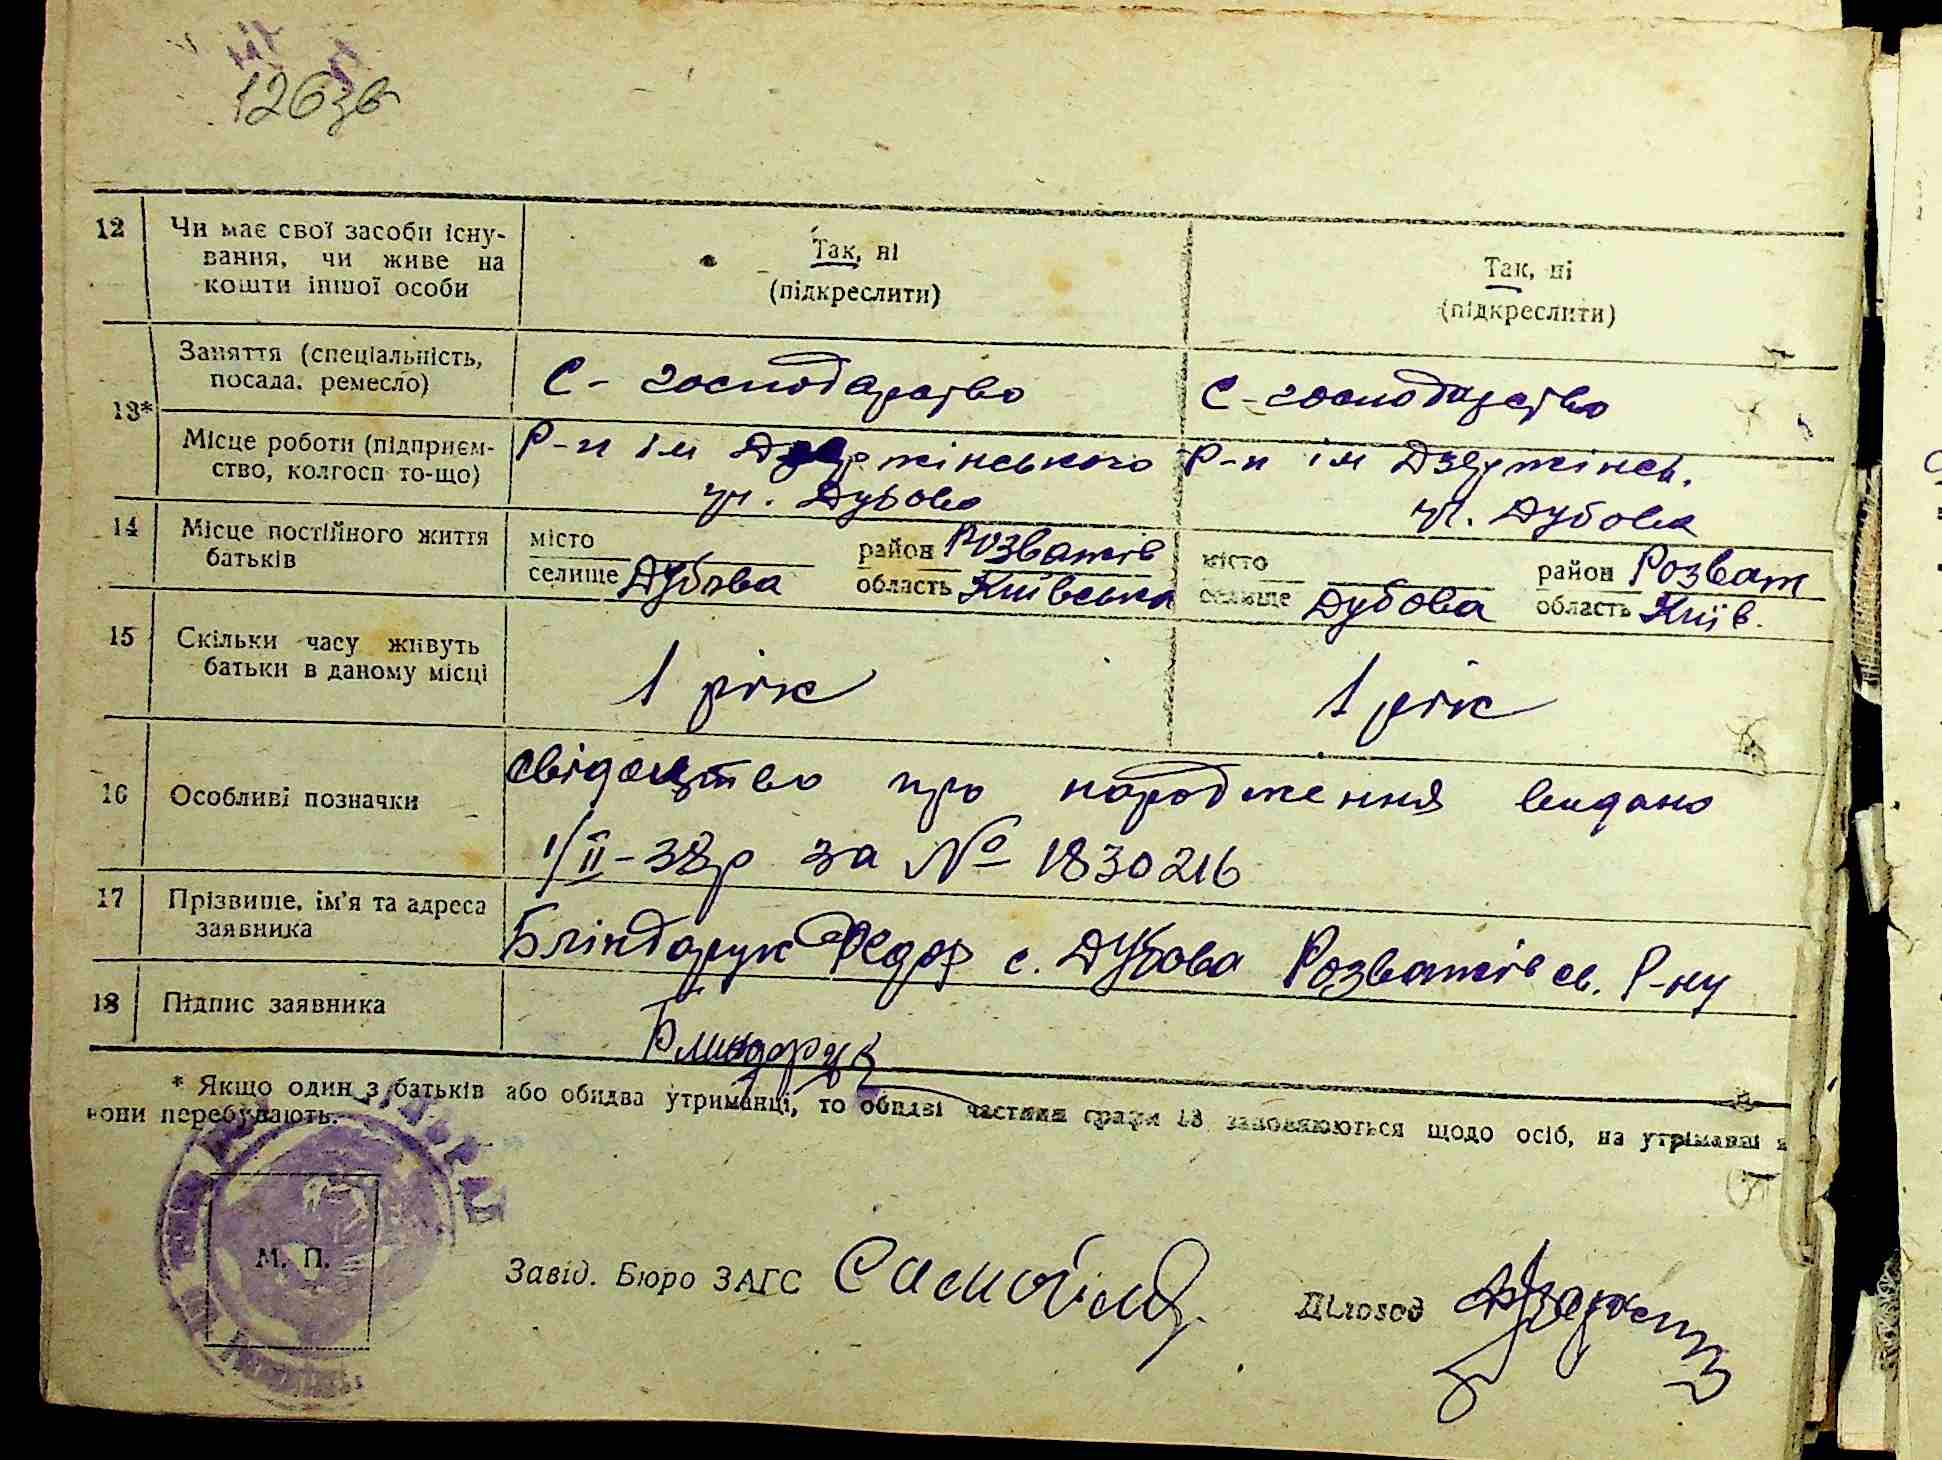 126зв
12 Чи має свої засоби існу-
вання, чи живе на
кошти іншої особи
Так, ні
(підкреслити)
Так, ні
(підкреслити)
13*
Заняття (спеціальність,
посада, ремесло)
С-господарство
С-господарство
Місце роботи (підприєм-
ство, колгосп то-що)
Р-п ім Дзержінського
уч. Дубова
Р-п ім Дзержінсь.
уч. Дубова
14 Місце постійного життя
батьків
місто
селище Дубова
район Розватів
область Київська
місто
селище Дубова
район Розват
область Київ.
15 Скільки часу живуть
батьки в даному місці
1 рік
1 рік
16 Особливі позначки
свідоцтво про народження видано
1/II-38р за № 1830216
17 Прізвище, ім'я та адреса
заявника
Бліндарук Федор с. Дубова Розватівсь. Р-ну
18 Підпис заявника
Блиндарук
* Якщо один з батьків або обидва утриманці, то обидві частини графи 13 заповнюються щодо осіб, на утріманні я
вони перебувають.
М. П.
Завід. Бюро ЗАГС
Діловод